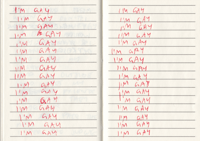 I'M GAY
I'M GAY
I'M GAY
I'M A GAY
I'M GAY
I'M GAY
I'M GAY
I'M GAY
I'M GAY
I'M GAY
I'M GAY
I'M GAY
I'M GAY
I'M GAY
I'M GAY
I'M GAY
I'M GAY
I'M GAY
I'M GAY
I'M GAY
I'M GAY
I'M GAY
I'M GAY
I'M GAY
I'M GAY
I'M GAY
I'M GAY
I'M GAY
I'M GAY
I'M GAY